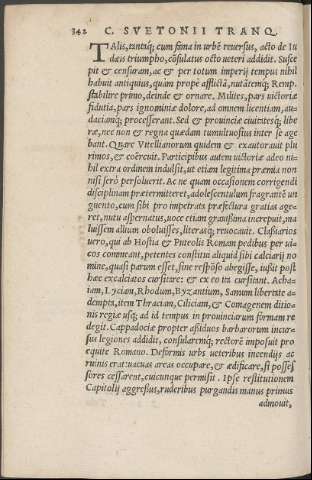 342 C. SVETONII TRANQ.
TAlis, tantáq; cum fama in urbē reuersus, acto de Iu
dæis triumpho, cōsulatus octo ueteri addidit. Susce
pit & censuram, ac & per totum imperij tempus nihil
habuit antiquius, quàm propè afflictā, nutātemq; Remp.
stabilire primo, deinde & ornare. Milites, pars uictoriæ
fiducia, pars ignominiæ dolore, ad omnem licentiam, au-
daciamq; processerant. Sed & prouinciæ ciuitatesq; libe
ræ, nec non & regna quædam tumultuosius inter se age
bant. Quare Vitellianorum quidem & exautorauit plu
rimos, & coërcuit. Participibus autem uictoriæ adeo ni-
hil extra ordinem indulsit, ut etiam legitima præmia non
nisi serò persoluerit. Ac ne quam occasionem corrigendi
disciplinam prætermitteret, adolescentulum fragrantē un
guento, cum sibi pro impetrata præfectura gratias age-
ret, nutu aspernatus, uoce etiam grauissima increpuit, ma
luissem allium oboluisses, literasq; reuocauit. Classiarios
uero, qui ab Hostia & Puteolis Romam pedibus per ui-
cos commeant, petentes constitui aliquid sibi calciarij no
mine, quasi parum esset, sine respōso abegisse, iussit post
hæc excalciatos cursitare: & ex eo ita cursitant. Acha-
iam, Lyciam, Rhodum, Byzantium, Samum libertate a-
dempta, item Thraciam, Ciliciam, & Comagenem ditio-
nis regiæ usq; ad id tempus in prouinciarum formam re
degit. Cappadociæ propter assiduos barbarorum incur-
sus legiones addidit, consularemq; rectorē imposuit pro
equite Romano. Deformis urbs ueteribus incendijs ac
ruinis erat: uacuas areas occupare, & ædificare, si posses
sores cessarent, cuicunque permisit. Ipse restitutionem
Capitolij aggressus, ruderibus purgandis manus primus
admouit,